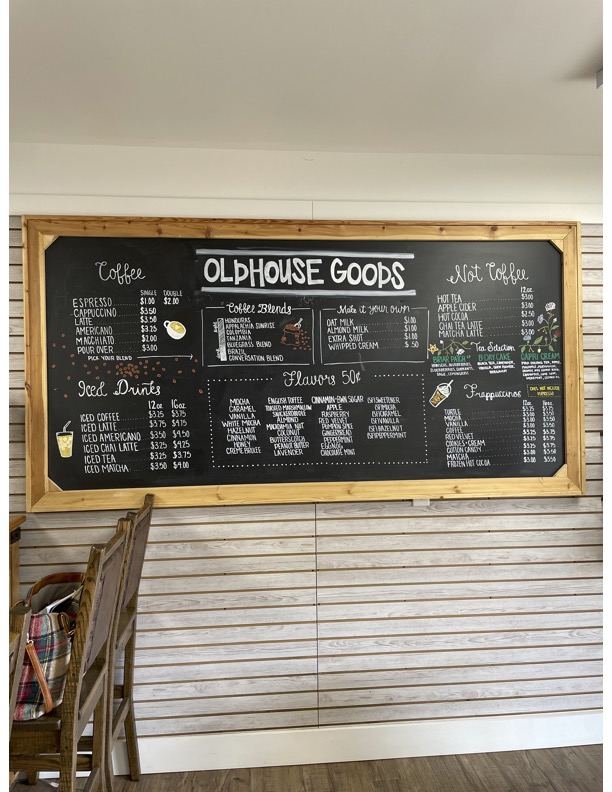 OLDHOUSE GOODS
Coffee
SINGLE DOUBLE
ESPRESSO $1.00 $2.00
CAPPUCCINO $3.50
LATTE $3.50
AMERICANO $3.25
MACCHIATO $2.00
POUR OVER $3.00
PICK YOUR BLEND
Iced Drinks
12oz 16oz
ICED COFFEE $3.75
ICED LATTE $3.75 $4.75
ICED AMERICANO $3.50 $4.50
ICED CHAI LATTE $3.25
ICED TEA $3.25 $3.75
ICED MATCHA $3.50 $4.00
Coffee Blends
HONDURAS
APPALACHIA SUNRISE
COLOMBIA
TANZANIA
BLUEGRASS BLEND
BRAZIL
CONVERSATION BLEND
Make it your own
OAT MILK $1.00
ALMOND MILK $1.00
EXTRA SHOT $1.00
WHIPPED CREAM $.50
Flavors 50¢
MOCHA
CARAMEL
VANILLA
WHITE MOCHA
HAZELNUT
CINNAMON
HONEY
CREME BRULEE
ENGLISH TOFFEE
TOASTED MARSHMALLOW
SNICKERDOODLE
ALMOND
MACADAMIA NUT
COCONUT
BUTTERSCOTCH
PEANUT BUTTER
LAVENDER
CINNAMON-BWN SUGAR
APPLE
RASPBERRY
RED VELVET
PUMPKIN SPICE
GINGERBREAD
PEPPERMINT
EGGNOG
CHOCOLATE MINT
(SF) SWEETENER
(SF) MOCHA
(SF) CARAMEL
(SF) VANILLA
(SF) HAZELNUT
(SF) PEPPERMINT
Not Coffee
12oz
HOT TEA $3.00
APPLE CIDER $3.00
HOT COCOA $2.50
CHAI TEA LATTE $3.00
MATCHA LATTE $3.00
Tea Selection
BRIAR PATCH
B-DRY CAKE
CAPRI CREAM
Frappuccinos
DOES NOT INCLUDE
ESPRESSO
12oz 16oz
TURTLE $3.25 $3.75
MOCHA $3.25 $3.75
VANILLA $3.25 $3.75
COFFEE $3.25 $3.75
RED VELVET $3.25 $3.75
COOKIES & CREAM $3.25 $3.75
COTTON CANDY $3.00 $3.50
MATCHA
FROZEN HOT COCOA $3.00 $3.50